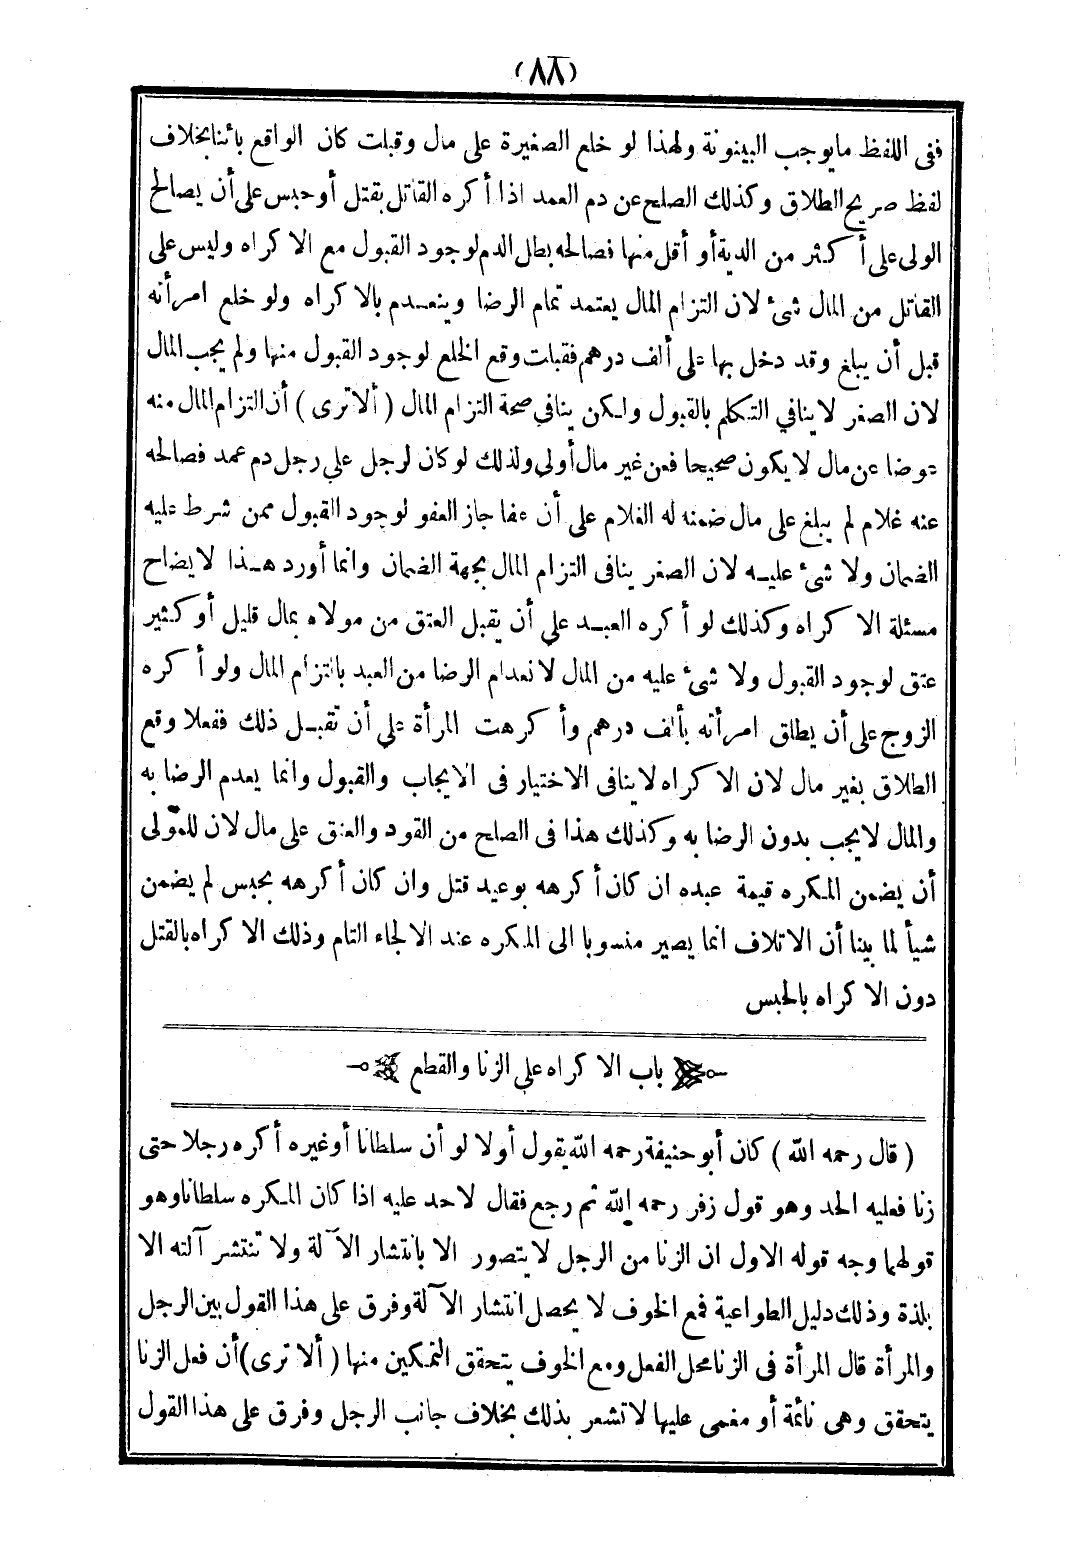 (٨٨)
ففى اللفظ مايوجب البينونة ولهذا لو خلع الصغيرة على مال وقبلت كان الواقع بائنا بخلاف
لفظ صريح الطلاق وكذلك الصلح عن دم العمد اذا أكره القاتل بقتل أو حبس على أن يصالح
الولى على أكثر من الدية أو أقل منها فصالحه بطل الدم لوجود القبول مع الاكراه وليس على
القاتل من المال شىء لان التزام المال يعتمد تمام الرضا وينعدم بالاكراه ولو خلع امرأته
قبل أن يبلغ وقد دخل بها على ألف درهم فقبلت وقع الخلع لوجود القبول منها ولم يجب المال
لان الصغر لا ينافي التكلم بالقبول ولكن ينافي صحة التزام المال ( ألا ترى ) أن التزام المال منه
عوضا عن مال لا يكون صحيحا فعن غير مال أولي ولذلك لو كان لرجل علي رجل دم عمد فصالحه
عنه غلام لم يبلغ على مال ضمنه له الغلام على أن عفا جاز العفو لوجود القبول ممن شرط عليه
الضمان ولا شىء عليه لان الصغر ينافى التزام المال بجهة الضمان وانما أورد هذا لايضاح
مسئلة الاكراه وكذلك لو أكره العبد علي أن يقبل العتق من مولاه بمال قليل أو كثير
عتق لوجود القبول ولا شىء عليه من المال لانعدام الرضا من العبد بالتزام المال ولو أكره
الزوج على أن يطلق امرأته بألف درهم وأكرهت المرأة علي أن تقبل ذلك ففعلا وقع
الطلاق بغير مال لان الاكراه لا ينافى الاختيار فى الايجاب والقبول وانما يعدم الرضا به
والمال لا يجب بدون الرضا به وكذلك هذا فى الصلح من القود والعتق على مال لان للمولى
أن يضمن المكره قيمة عبده ان كان أكرهه بوعيد قتل وان كان أكرهه بحبس لم يضمن
شيأ لما بينا أن الاتلاف انما يصير منسوبا الى المكره عند الالجاء التام وذلك الاكراه بالقتل
دون الاكراه بالحبس
باب الاكراه علي الزنا والقطع
( قال رحمه الله ) كان أبو حنيفة رحمه الله يقول أولا لو أن سلطانا أو غيره أكره رجلا حتى
زنا فعليه الحد وهو قول زفر رحمه الله ثم رجع فقال لا حد عليه اذا كان المكره سلطانا وهو
قولهما وجه قوله الاول ان الزنا من الرجل لا يتصور الا بانتشار الآلة ولا تنتشر آلته الا
بلذة وذلك دليل الطواعية فمع الخوف لا يحصل انتشار الآلة وفرق على هذا القول بين الرجل
والمرأة قال المرأة فى الزنا محل الفعل ومع الخوف يتحقق التمكين منها ( ألا ترى ) أن فعل الزنا
يتحقق وهى نائمة أو مغمى عليها لا تشعر بذلك بخلاف جانب الرجل وفرق على هذا القول